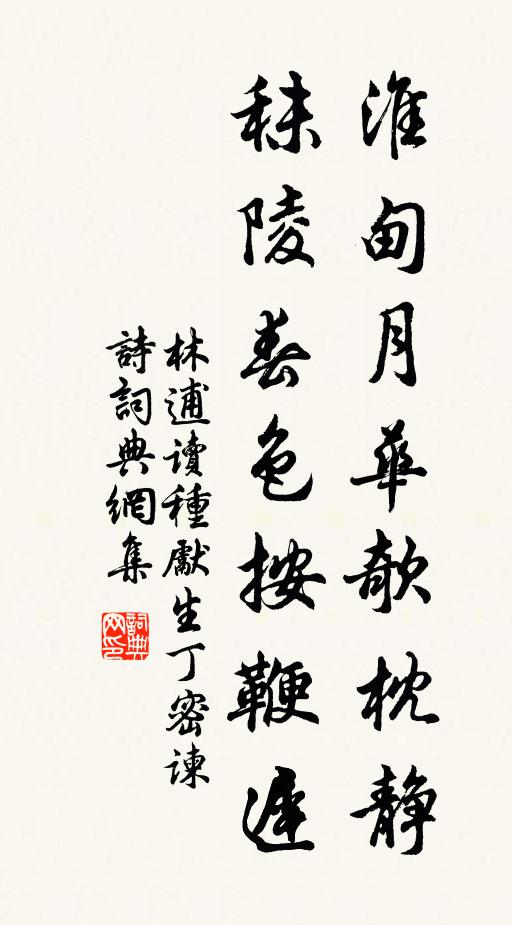 淮甸月華欹枕静
秣陵春色按鞭遲
林逋讀種獻生丁密諫
詩詞典網集
詞典网印